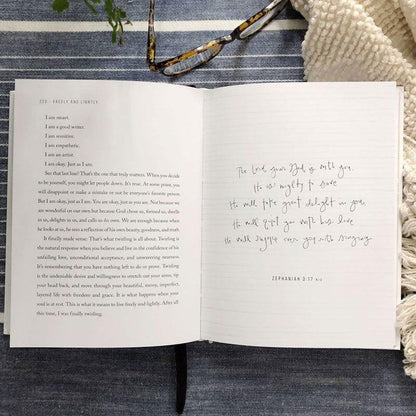 220 · FREELY AND LIGHTLY
I am smart.
I am a good writer.
I am sensitive.
I am empathetic.
I am an artist.
I am okay. Just as I am.
See that last line? That's the one that truly matters. When you decide
to be yourself, you might let people down. It's true. At some point, you
will disappoint or make a mistake or not be everyone's favorite person.
But I am okay, just as I am. You are okay, just as you are. Not because we
are wonderful on our own but because God chose us, formed us, dwells
in us, delights in us, and calls us his own. We are enough because when
he looks at us, he sees a reflection of his own beauty, goodness, and truth.
It finally made sense: That's what twirling is all about. Twirling is
the natural response when you believe and live in the confidence of his
unfailing love, unconditional acceptance, and unwavering nearness.
It's remembering that you have nothing left to do or prove. Twirling
is the undeniable desire and willingness to stretch out your arms, tip
your head back, and move through your beautiful, messy, imperfect,
layered life with freedom and grace. It is what happens when your
soul is at rest. This is what it means to live freely and lightly. After all
this time, I was finally twirling.
The Lord your God is with you,
He is mighty to save.
He will take great delight in you,
He will quiet you with his love,
He will rejoice over you with singing.
ZEPHANIAH 3:17 NIV